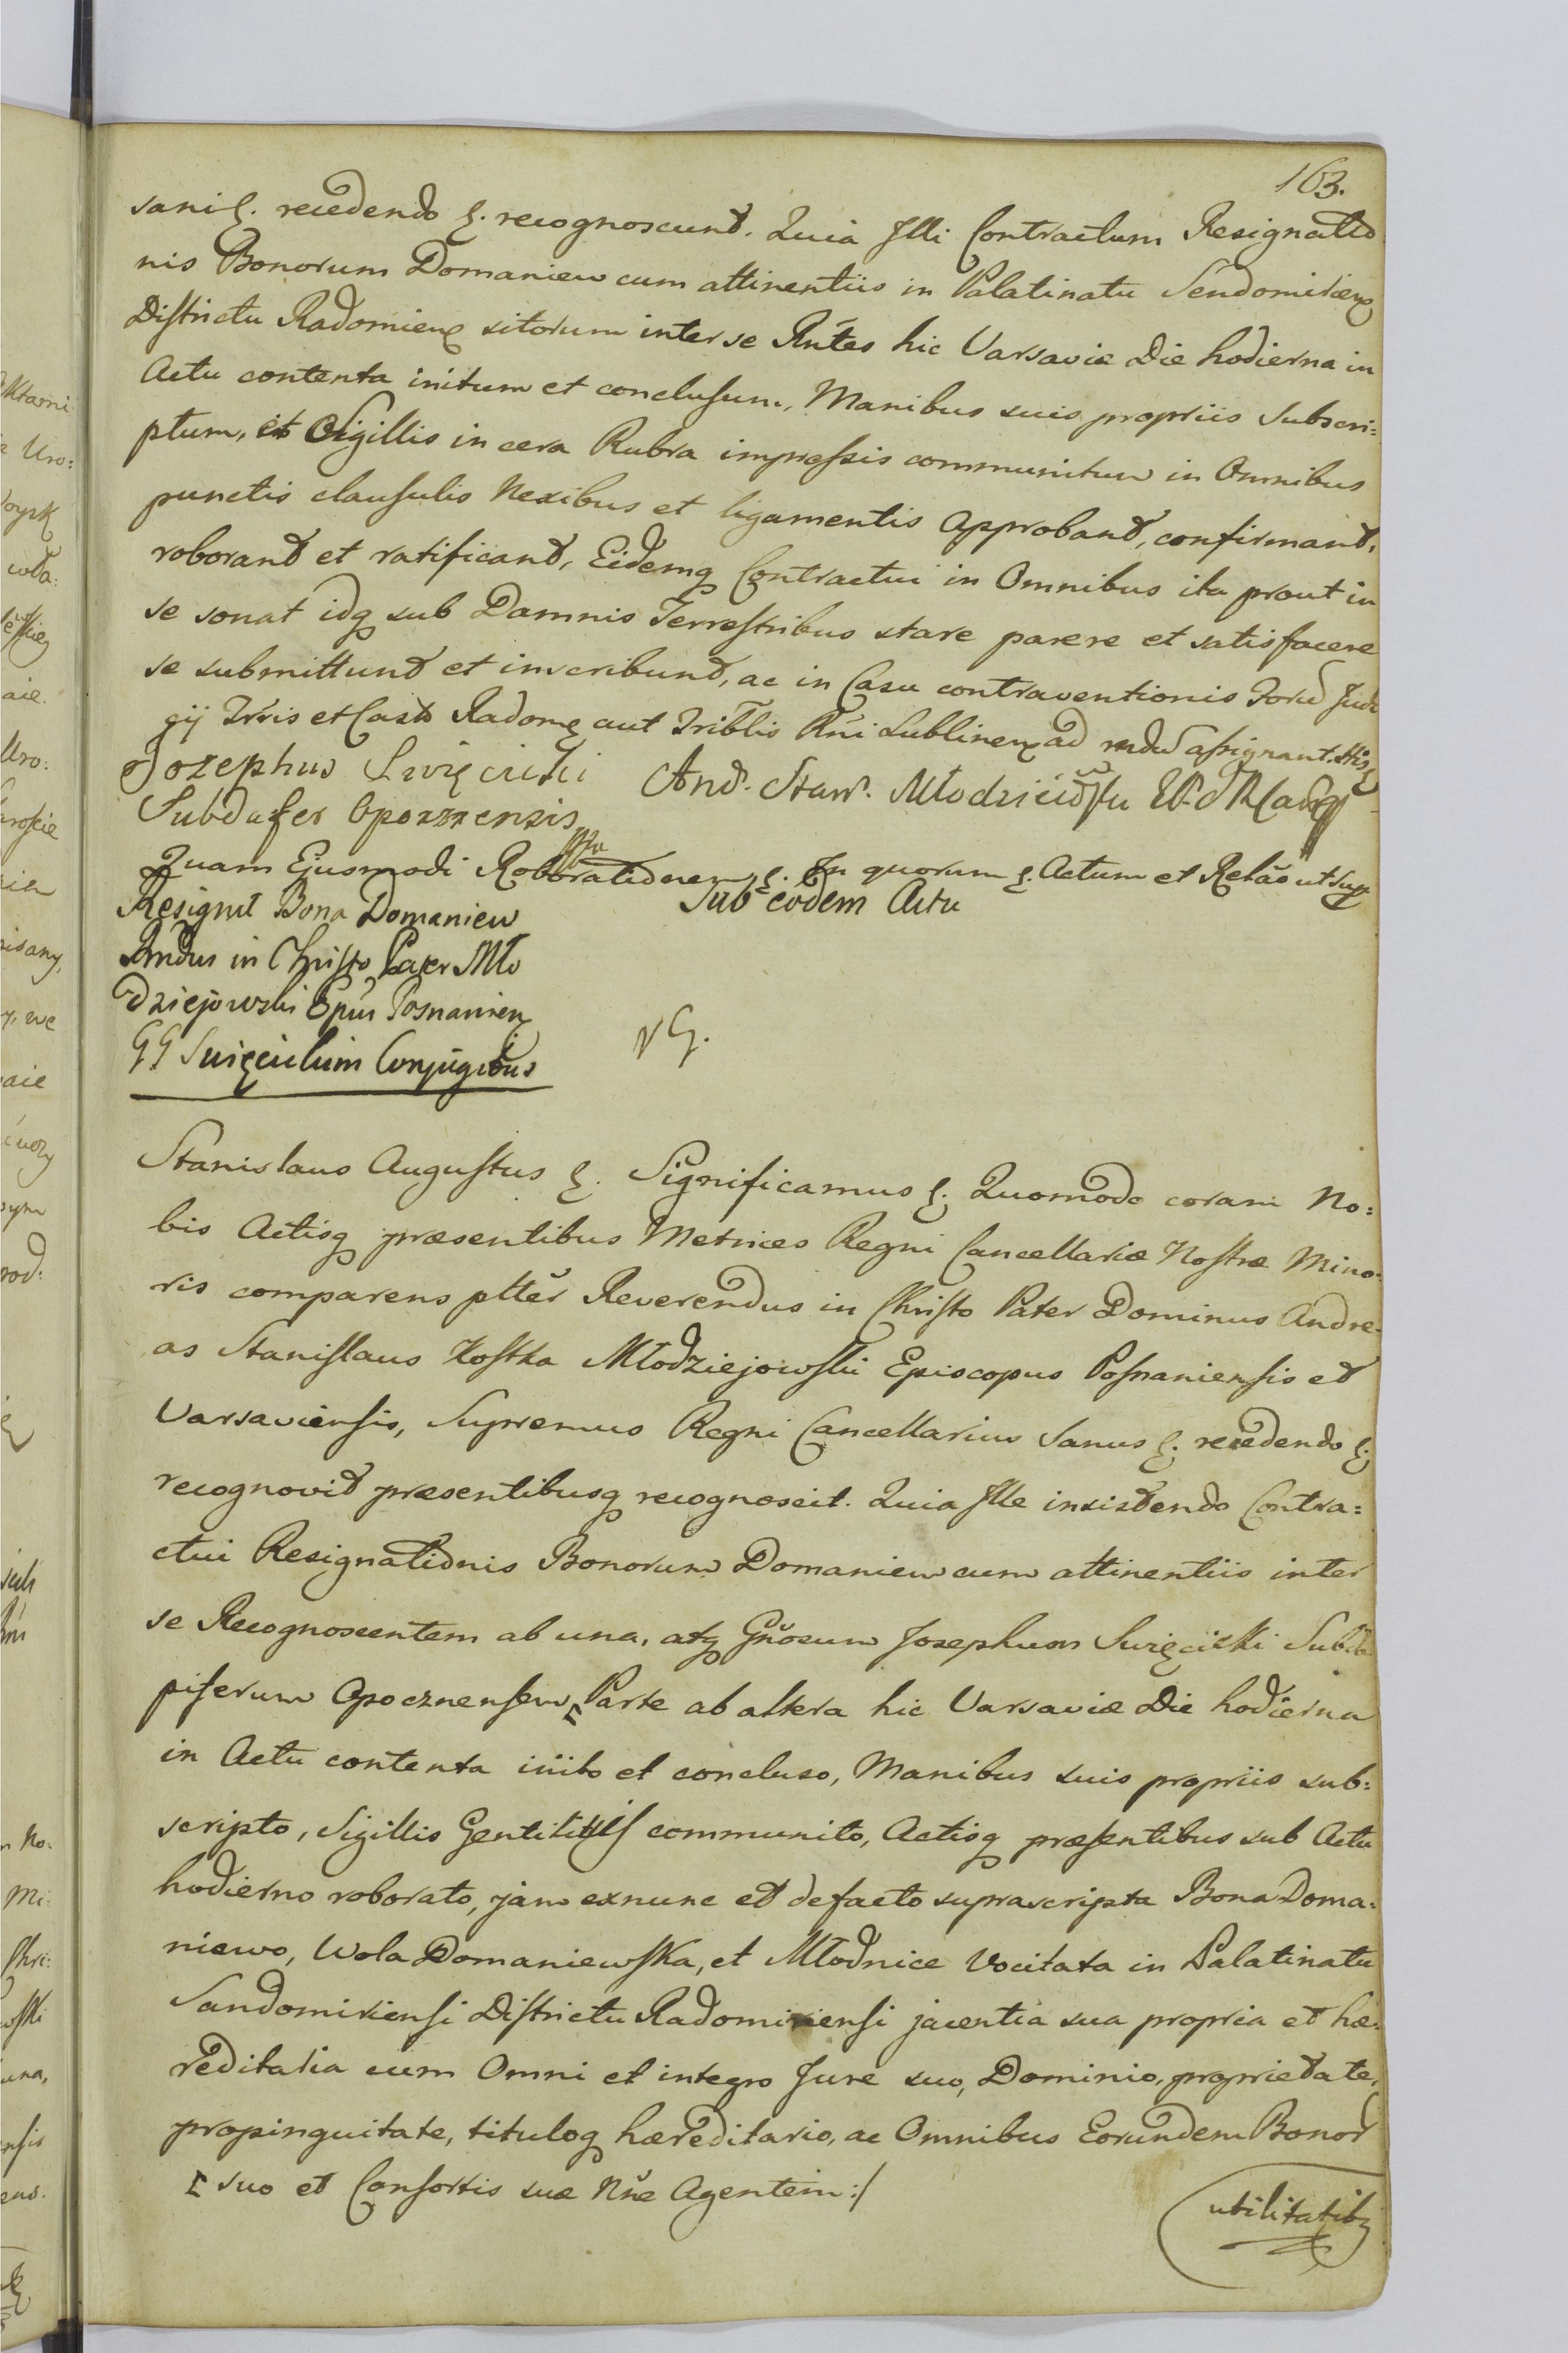 163.
sani &. recedendo &. recognoscunt. Quia Illi Contractum Resignatio
nis Bonorum Domaniew cum attinentiis in Palatinatu Sendomirien̄
Districtu Radomien̄ sitorum inter se Rn̄tes hic Varsaviæ Die hodierna in
Actu contenta initum et conclusum, Manibus suis propriis Subscri=
ptum, et Sigillis in cera Rubra impressis communitum in Omnibus
punctis clausulis Nexibus et ligamentis approbant, confirmant,
roborant et ratificant, Eidemq Contractui in Omnibus ita prout in
se sonat idq sub Damnis Terrestribus stare parere et satisfacere
se submittunt et inscribunt, ac in Casu contraventionis Forū Judi
cij Trr̄is et Cast Radom aut Tribl̄is Rn̄i Lublinen̄ ad rndū assignant.
Jozephus Swięcicki And. Staw. Młodziejowski
Subdapifer Opoznensis
Quam Ejusmodi Roborationem &. In quorum &. Actum et Relāo ut supr
Resignt Bona Domaniew Sub eodem Actu
Rndus in Christo Pater Mło
dziejowski Epūs Posnanien̄
GG Swięcickim Conjugibus
VG.
Stanislaus Augustus &. Significamus &. Quomodo coram No=
bis Actisq præsentibus Metrices Regni Cancellariæ Nostræ Mino=
ris comparens pltēr Reverendus in Christo Pater Dominus Andre=
as Stanislaus Kostka Młodziejowski Episcopus Posnaniensis et
Varsaviensis, Supremus Regni Cancellarius Sanus &. recedendo &.
recognovit præsentibusq recognoscit. Quia Ille insistendo Contra=
ctui Resignationis Bonorum Domaniew cum attinentiis inter
se Recognoscentem ab una, atq Gn̄osum Josephum Swięcicki Subda
piferum Opocznensem, ⌈ Parte ab altera hic Varsaviæ Die hodierna
in Actu contenta inito et concluso, Manibus suis propriis sub=
scripto, Sigillis Gentilitiis communito, Actisq præsentibus sub Actu
hodierno roborato, jam exnunc et defacto suprascripta Bona Doma=
niewo, Wola Domaniewska, et Młodnice Vocitata in Palatinatu
Sandomiriensi Districtu Radomiriensi jacentia sua propria et hæ=
reditaria cum Omni et integro Jure suo, Dominio, proprietate,
propinquitate, tituloq hæreditario, ac Omnibus Eorundem Bonor
⌈ suo et Consortis suæ Nn̄e Agentem :/
utilitatibq